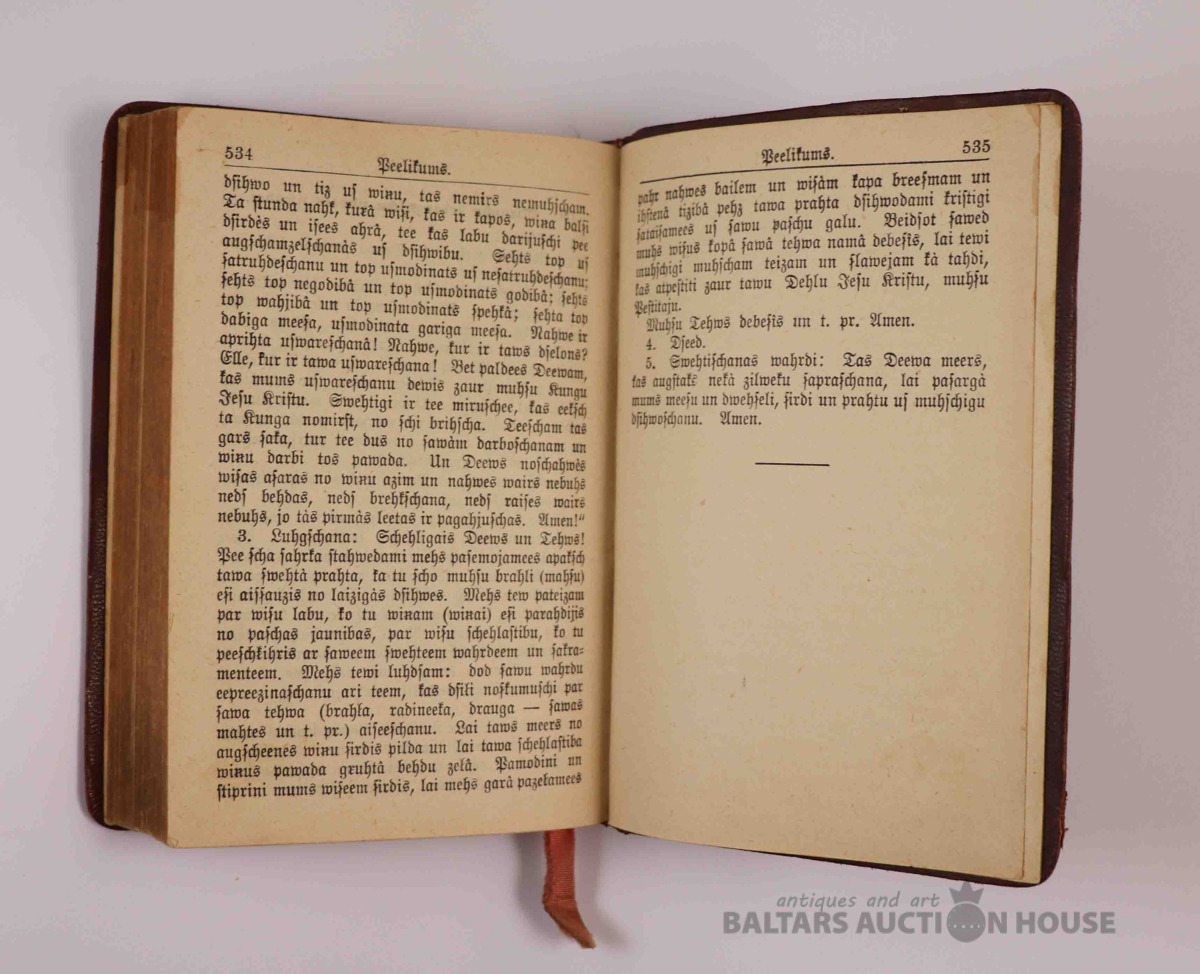 534
Peelikums.
dſihwo un tiz uſ wiņu, tas nemirs nemuhſcham.
Ta ſtunda nahk, kurâ wiſi, kas ir kapos, wiņa balſi
dſirdês un iſees ahrâ, tee kas labu darijuſchi pee
augſchamzelſchanâs uſ dſihwibu. Sehts top uſ
ſatruhdeſchanu un top uſmodinats uſ neſatruhdeſchanu;
ſehts top negodibâ un top uſmodinats godibâ; ſehts
top wahjibâ un top uſmodinats ſpehkâ; ſehta top
dabiga meeſa, uſmodinata gariga meeſa. Nahwe ir
aprihta uſwareſchanâ! Nahwe, kur ir taws dſelons?
Elle, kur ir tawa uſwareſchana! Bet paldees Deewam,
kas mums uſwareſchanu dewis zaur muhſu Kungu
Jeſu Kriſtu. Swehtigi ir tee miruſchee, kas eekſch
ta Kunga nomirſt, no ſchi brihſcha. Teeſcham tas
gars ſaka, tur tee dus no ſawâm darboſchanam un
wiņu darbi tos pawada. Un Deews noſchahwês
wiſas aſaras no wiņu azim un nahwes wairs nebuhs
nedſ behdas, nedſ brehkſchana, nedſ raiſes wairs
nebuhs, jo tâs pirmâs leetas ir pagahjuſchas. Amen!“
3. Luhgſchana: Schehligais Deews un Tehws!
Pee ſcha ſahrka ſtahwedami mehs paſemojamees apakſch
tawa ſwehtâ prahta, ka tu ſcho muhſu brahli (mahſu)
eſi aiſſauzis no laizigâs dſihwes. Mehs tew pateizam
par wiſu labu, ko tu wiņam (wiņai) eſi parahdijis
no paſchas jaunibas, par wiſu ſchehlaſtibu, ko tu
peeſchķihris ar ſaweem ſwehteem wahrdeem un ſakra-
menteem. Mehs tewi luhdſam: dod ſawu wahrdu
eepreezinaſchanu ari teem, kas dſiļi noſkumuſchi par
ſawa tehwa (brahļa, radineeka, drauga — ſawas
mahtes un t. pr.) aiſeeſchanu. Lai taws meers no
augſcheenes wiņu ſirdis pilda un lai tawa ſchehlaſtiba
wiņus pawada gruhtâ behdu zeļâ. Pamodini un
ſtiprini mums wiſeem ſirdis, lai mehs garâ pazeļamees
Peelikums.
535
pahr nahwes bailem un wiſâm kapa breeſmam un
ihſtenâ tizibâ pehz tawa prahta dſihwodami kriſtigi
ſataiſamees uſ ſawu paſchu galu. Beidſot ſawed
muhs wiſus kopâ ſawâ tehwa namâ debeſîs, lai tewi
muhſchigi muhſcham teizam un ſlawejam kâ tahdi,
kas atpeſtiti zaur tawu Dehlu Jeſu Kriſtu, muhſu
Peſtitaju.
Muhſu Tehws debeſîs un t. pr. Amen.
4. Dſeed.
5. Swehtiſchanas wahrdi: Tas Deewa meers,
kas augſtaks nekâ zilweku ſapraſchana, lai paſargâ
mums meeſu un dwehſeli, ſirdi un prahtu uſ muhſchigu
dſihwoſchanu. Amen.
antiques and art
BALTARS AUCTION HOUSE